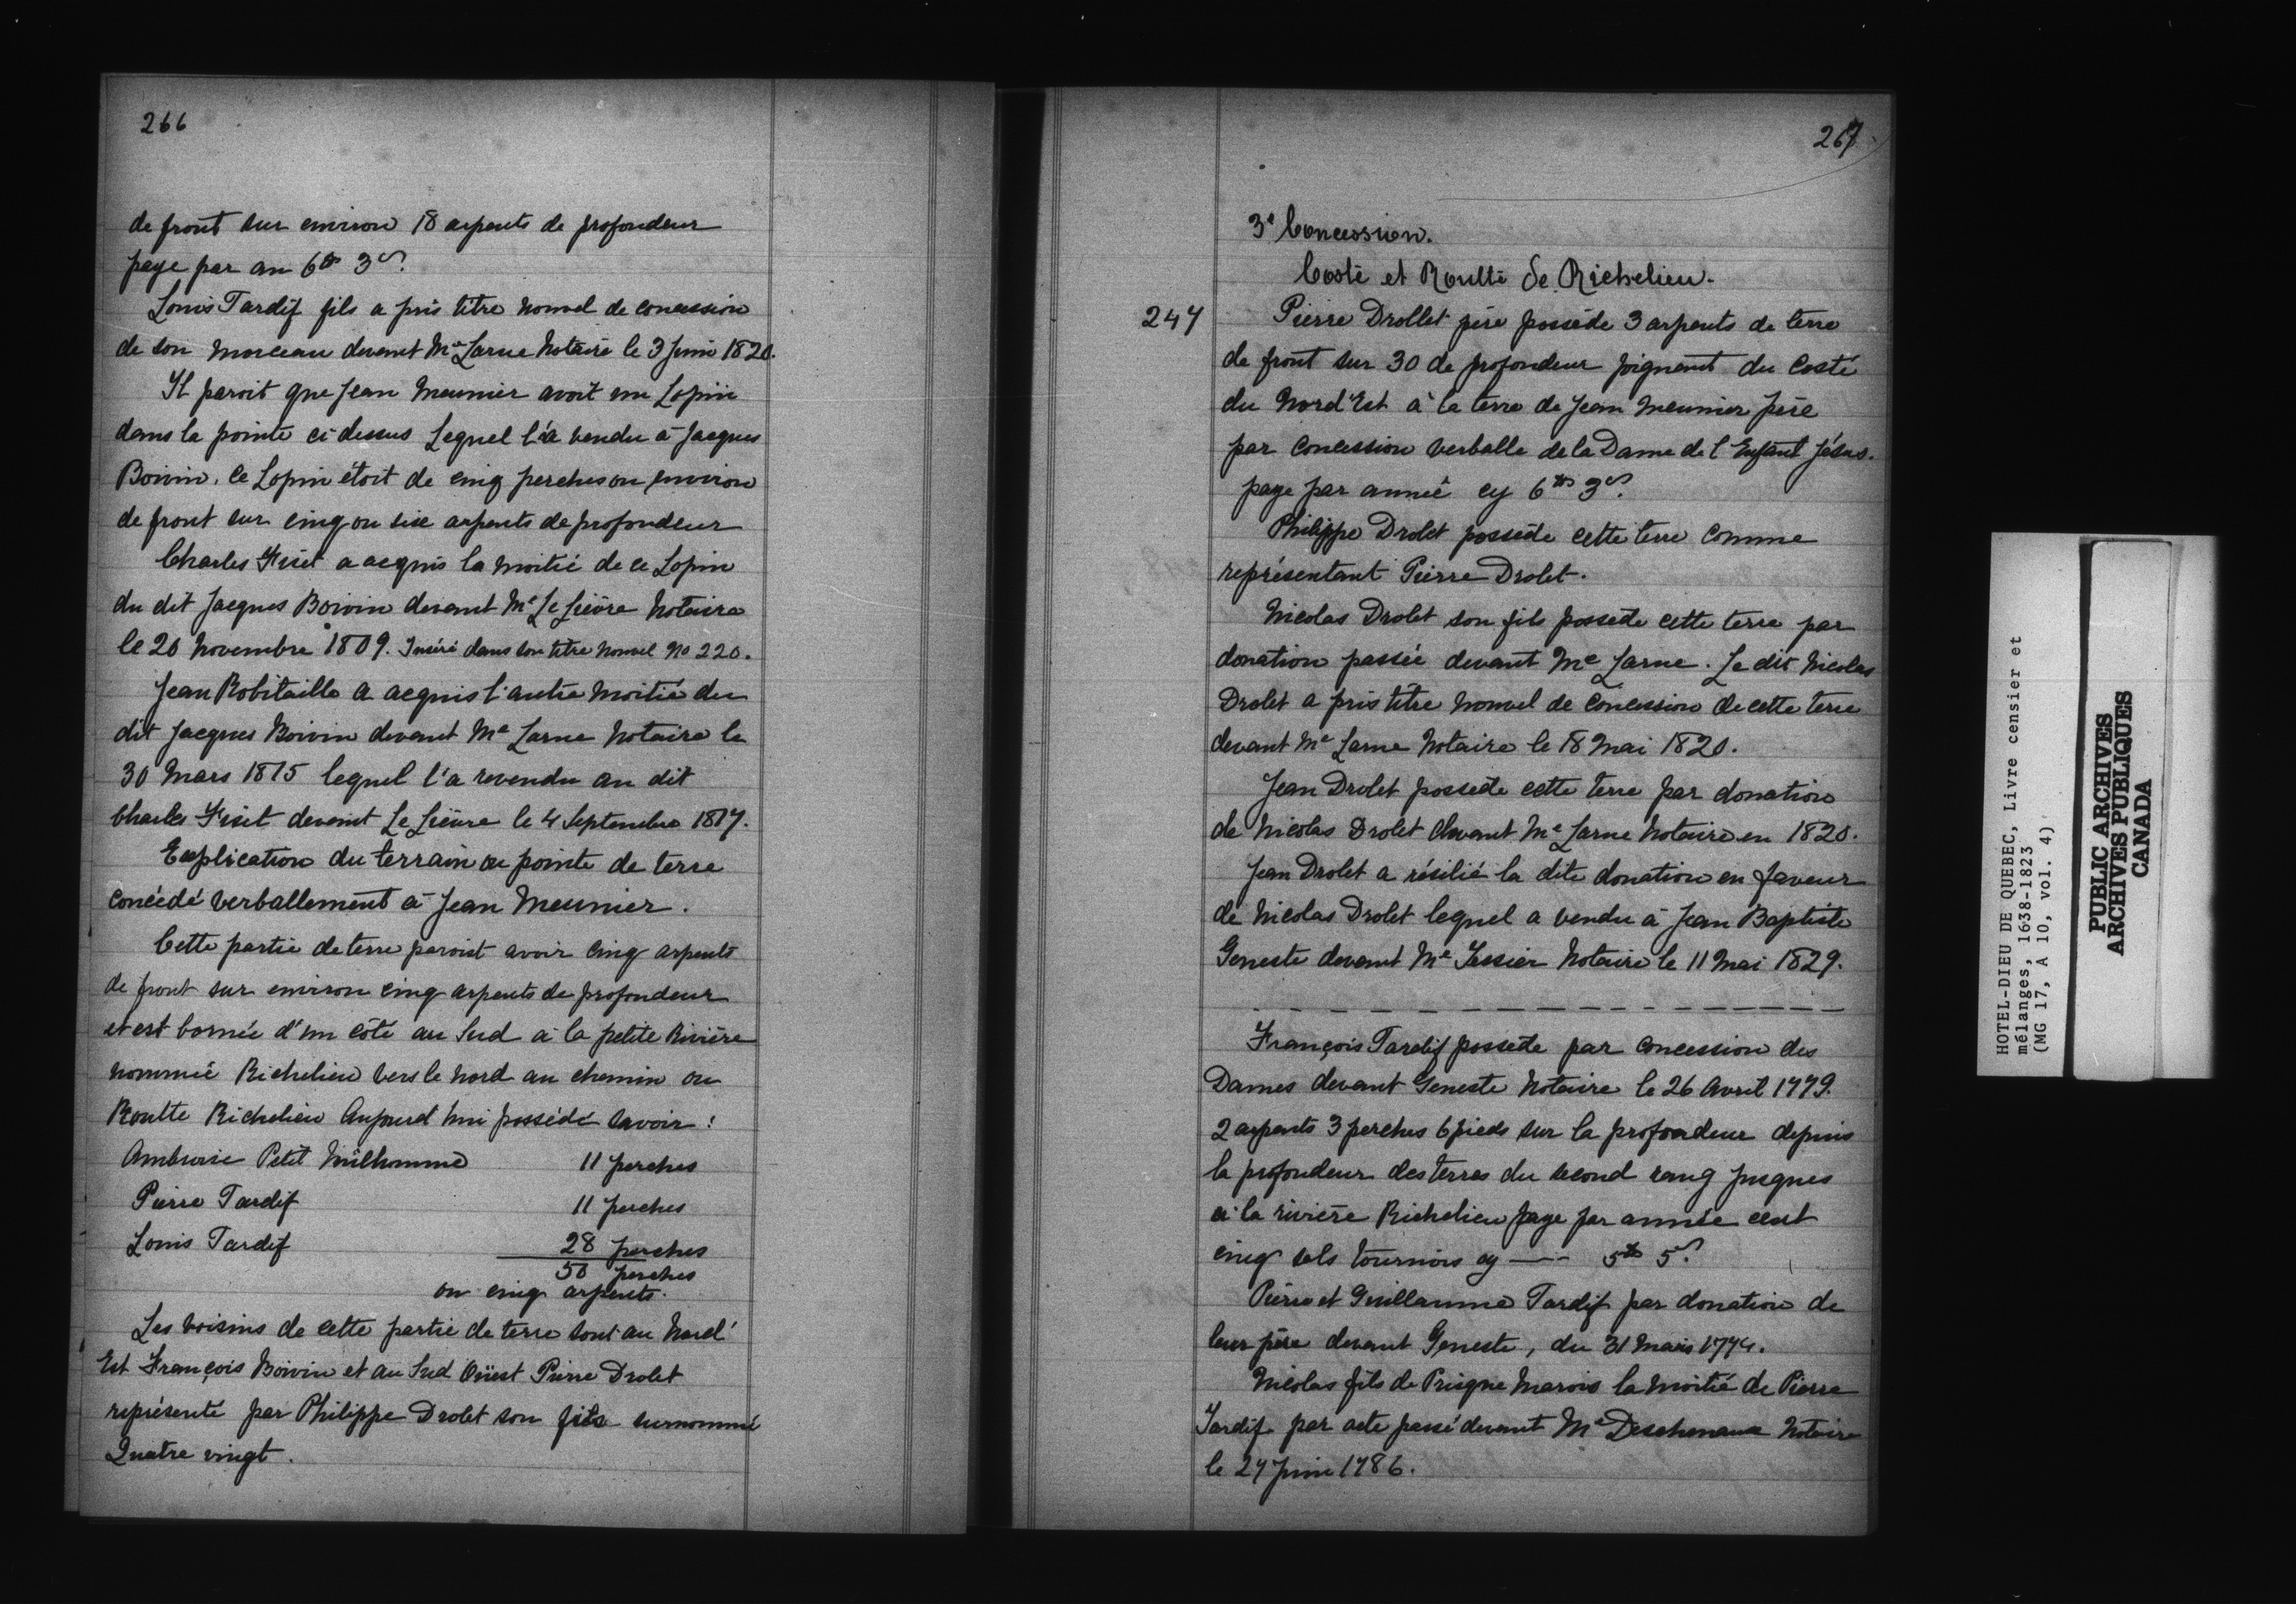 266
de front sur environ 18 arpents de profondeur
paye par an 6ᵗᵗˢ 3ˢ.
Louis Tardif fils a pris titre nouvel de concession
de son morceau devant Mᵉ Larue Notaire le 3 Juin 1820.
Il paroit que Jean Meunier avoit un Lopin
dans la pointe ci-dessus Lequel l'a vendu à Jacques
Boivin. Ce Lopin étoit de cinq perches ou environ
de front sur cinq ou six arpents de profondeur
Charles Fiset a acquis la moitié de ce Lopin
du dit Jacques Boivin devant Mᵉ Le Lièvre Notaire
le 20 Novembre 1809. Inséré dans son titre nouvel No 220.
Jean Robitaille a acquis l'autre moitié du
dit Jacques Boivin devant Mᵉ Larue Notaire le
30 Mars 1815 lequel l'a revendu au dit
Charles Fiset devant Le Lièvre le 4 Septembre 1817.
Explication du terrain ou pointe de terre
concédé verballement à Jean Meunier.
Cette partie de terre paroist avoir cinq arpents
de front sur environ cinq arpents de profondeur
et est bornée d'un côté au Sud à la petite Rivière
nommée Richelieu vers le nord au chemin ou
Routte Richelieu Aujourd'hui possédé savoir:
Ambroise Petit Milhomme 11 perches
Pierre Tardif 11 perches
Louis Tardif 28 perches
50 perches
ou cinq arpents.
Les voisins de cette partie de terre sont au Nord
Est François Boivin et au Sud Ouëst Pierre Drolet
représenté par Philippe Drolet son fils surnommé
Quatre vingt.
267
3ᵉ Concession.
Costé et Routte de Richelieu.
247 Pierre Drollet père possède 3 arpents de terre
de front sur 30 de profondeur joignant du Costé
du Nord Est à la terre de Jean Meunier père
par concession verballe de la Dame de l'Enfant Jésus.
paye par année cy 6ᵗᵗˢ 3ˢ.
Philippe Drolet possède cette terre comme
représentant Pierre Drolet.
Nicolas Drolet son fils possède cette terre par
donation passée devant Mᵉ Larue. Le dit Nicolas
Drolet a pris titre nouvel de concession de cette terre
devant Mᵉ Larue Notaire le 18 Mai 1820.
Jean Drolet possède cette terre par donation
de Nicolas Drolet devant Mᵉ Larue Notaire en 1820.
Jean Drolet a résilié la dite donation en faveur
de Nicolas Drolet lequel a vendu à Jean Baptiste
Geneste devant Mᵉ Tessier Notaire le 11 Mai 1829.
François Tardif possède par concession des
Dames devant Geneste Notaire le 26 Avril 1779.
2 arpents 3 perches 6 pieds sur la profondeur depuis
la profondeur des terres du second rang jusques
à la rivière Richelieu paye par année cent
cinq sols tournois cy —— 5ᵗᵗˢ 5ˢ.
Pierre et Guillaume Tardif par donation de
leur père devant Geneste, du 31 Mars 1774.
Nicolas fils de Prisque Marois la moitié de Pierre
Tardif par acte passé devant Mᵉ Deschenaux Notaire
le 27 Juin 1786.
HOTEL-DIEU DE QUEBEC, Livre censier et
mélanges, 1638-1823
(MG 17, A 10, vol. 4)
PUBLIC ARCHIVES
ARCHIVES PUBLIQUES
CANADA